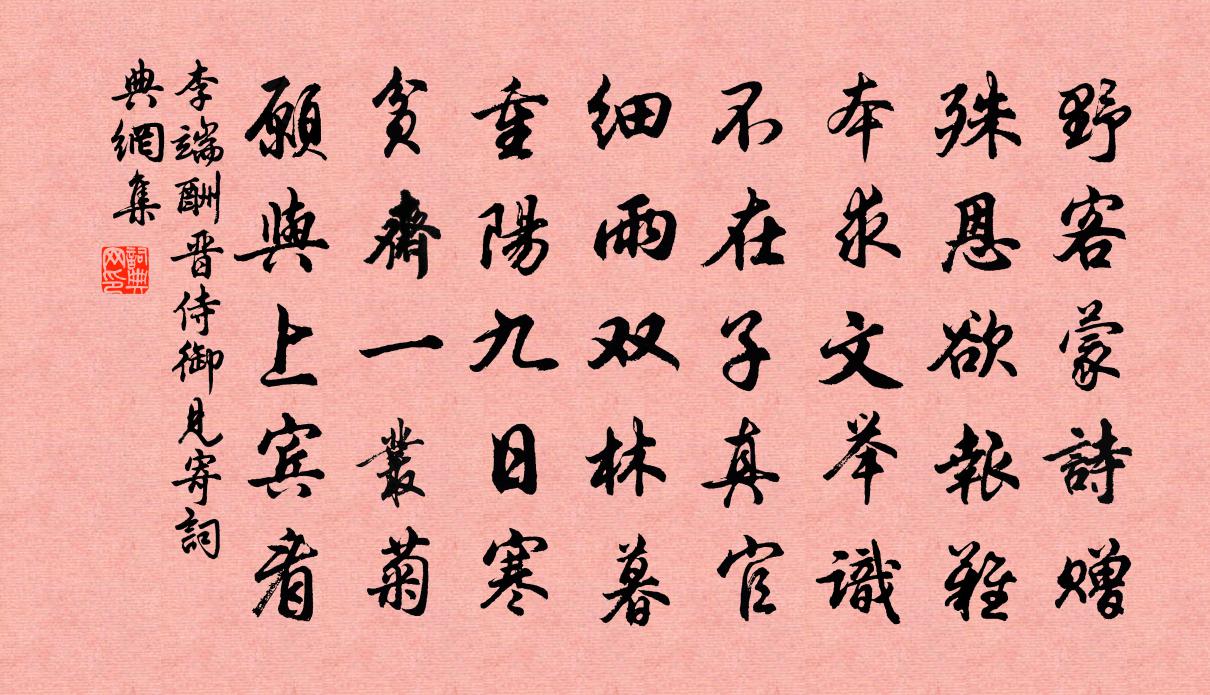 野客蒙詩赠
殊恩欲報難
本求文举識
不在子真官
细雨双林暮
重陽九日寒
贫齋一叢菊
願與上宾看
李端酬晋侍御見寄詞
典網集
詞典
网印